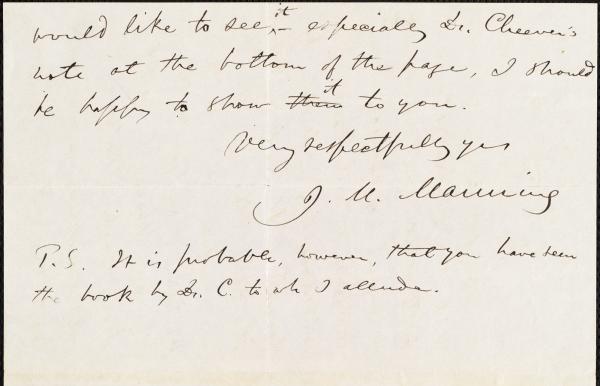 would like to see it — especially Dr. Cheever's
note at the bottom of the page, I should
be happy to show them it to you.
Very respectfully yrs
J. M. Manning
P.S. It is probable, however, that you have seen
the book by Dr. C. to wh I allude.